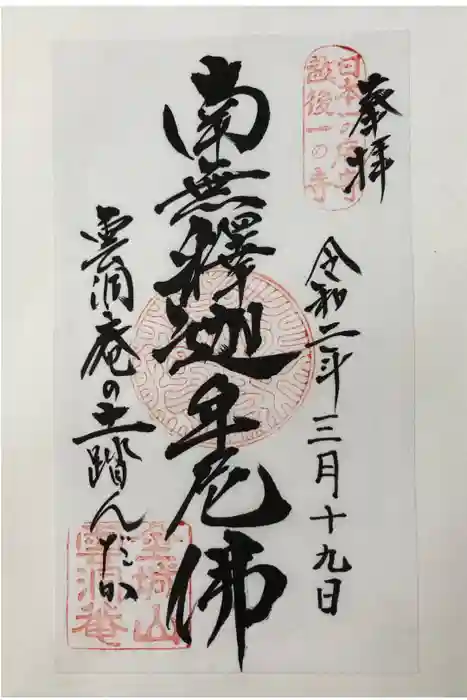 奉拝
日本一の
越後一の寺
令和二年三月十九日
南無釋迦牟尼佛
雲洞庵の土踏んだか
金城山
雲洞菴